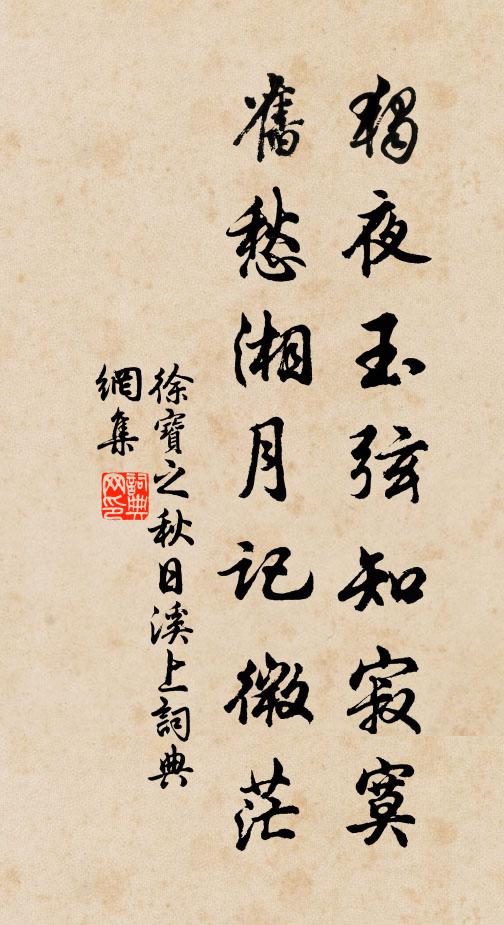 獨夜玉弦知寂寞
舊愁湘月記微茫
徐寶之秋日溪上詞典
網集
詞典
网印